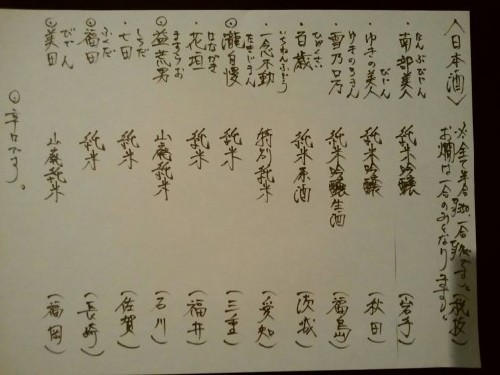 〈日本酒〉 ※全て半合 一合 です。税抜
お燗は一合のみとなります。
なんぶびじん
・南部美人 純米吟醸 (岩手)
びじん
・ゆきの美人 純米吟醸 (秋田)
・雪乃 純米吟醸生酒 (福島)
ひゃくさい
・百歳 純米原酒 (茨城)
いちねんふどう
・一念不動 特別純米 (愛知)
たきじまん
◎瀧自慢 純米 (三重)
はながき
・花垣 純米 (福井)
ますらお
◎益荒男 山廃純米 (石川)
しちだ
・七田 純米 (佐賀)
ふくだ
◎福田 純米 (長崎)
びでん
◎美田 山廃純米 (福岡)
◎辛口です。